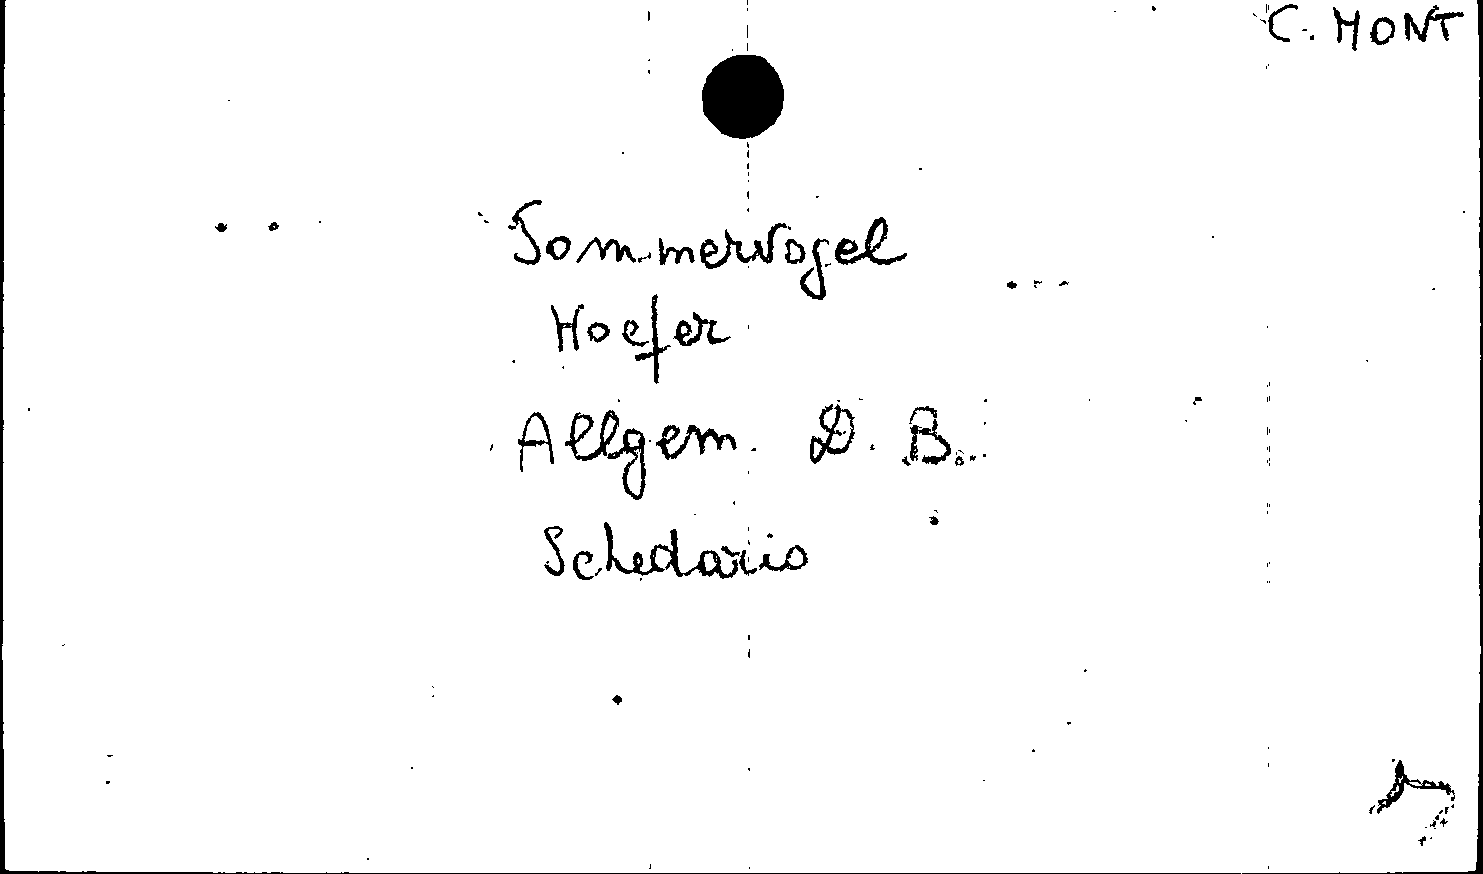 C. MONT
Sommervogel
Hoefer
Allgem. D. B.
Schedario